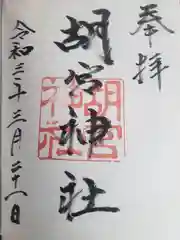 奉拝
胡宮神社
胡宮神社
令和三年三月二十一日